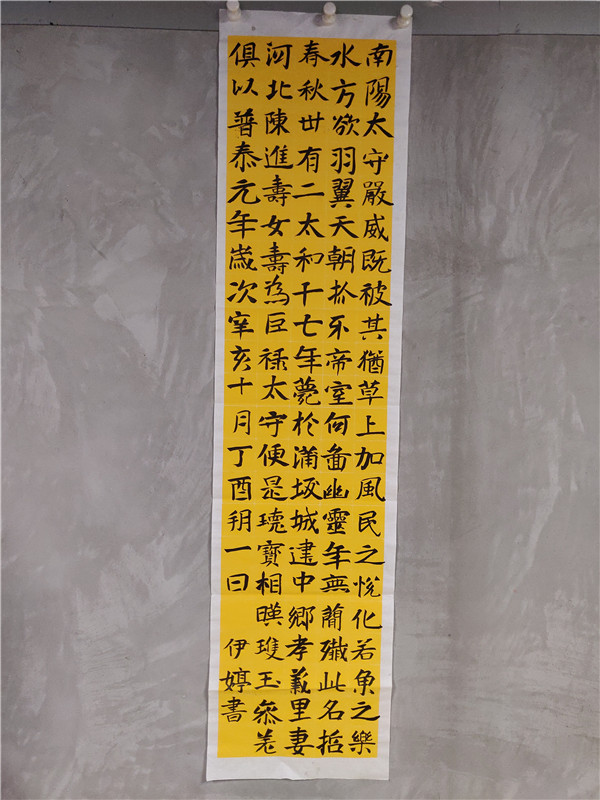 南陽太守嚴威既被其猶草上加風民之悅化若魚之樂
水方欲羽翼天朝抓牙帝室何啚幽靈年無簡殲此名哲
春秋卅有二太和十七年薨於蒲坂城建中鄉孝義里妻
河北陳進壽女壽為巨祿太守便是瑰寶相暎瓊玉參差
俱以普泰元年歲次辛亥十月丁酉朔一日
伊婷書